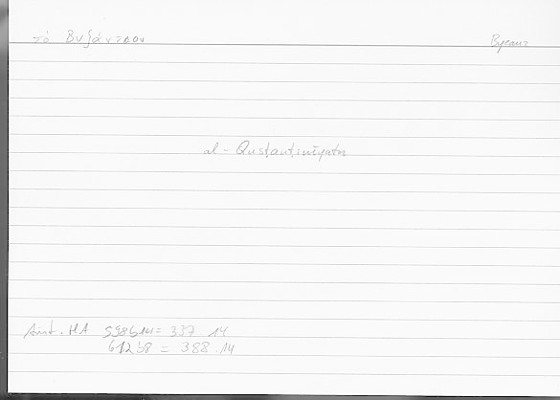 τὸ Βυζάντιον Byzanz
al-Qusṭanṭinīyatu
Arist. HA 598b14 = 337.14
612b8 = 388.14